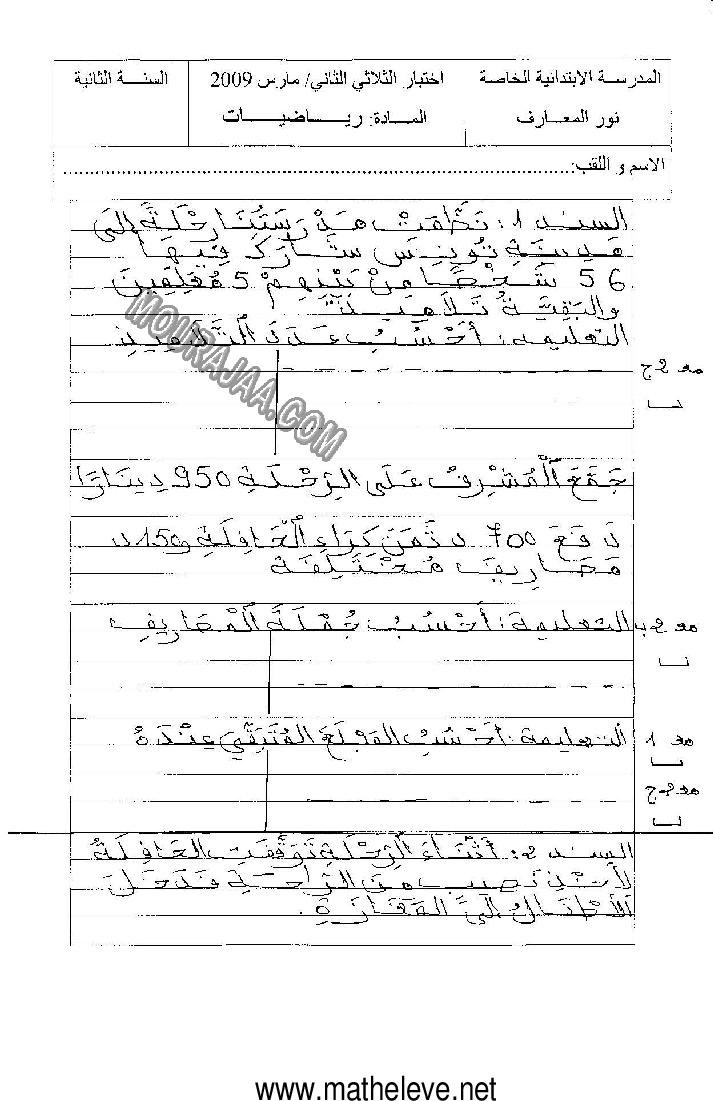 المدرسة الابتدائية الخاصة
نور المعارف
اختبار الثلاثي الثاني/ مارس 2009
المادة: رياضيات
السنة الثانية
الاسم و اللقب:
السند 1: نَظَّمَتْ مَدْرَسَتُنَا رِحْلَةً إِلَى
مَدِينَةِ تُونِسَ شَارَكَ فِيهَا
56 شَخْصًا مِنْ بَيْنِهِمْ 5 مُعَلِّمِينَ
والبَقِيَّةُ تَلَامِيذٌ
التعليمة: أَحْسُبُ عَدَدَ التَّلَامِيذِ
مع 2 ج
جَمَّعَ الْمُشْرِفُ عَلَى الرِّحْلَةِ 950 دِينَارًا
دَفَعَ 700 د ثَمَنَ كِرَاءِ الْحَافِلَةِ و150 د
مَصَارِيفَ مُخْتَلِفَة
التعليمة: أَحْسُبُ جُمْلَةَ الْمَصَارِيفِ
مع 2 ب
التعليمة: أَحْسُبُ المَبْلَغَ المُتَبَقِّيَ عِنْدَهُ
مع 1
مع 2 ج
السند 2: أَثْنَاءَ الرِّحْلَةِ تَوَقَّفَتِ الحَافِلَةُ
لأخذ نصيب من الرَّاحَةِ فَدَخَلَ
الأَطْفَالُ إِلَى المَغَازَةِ.
MOURAJAA.COM
www.matheleve.net